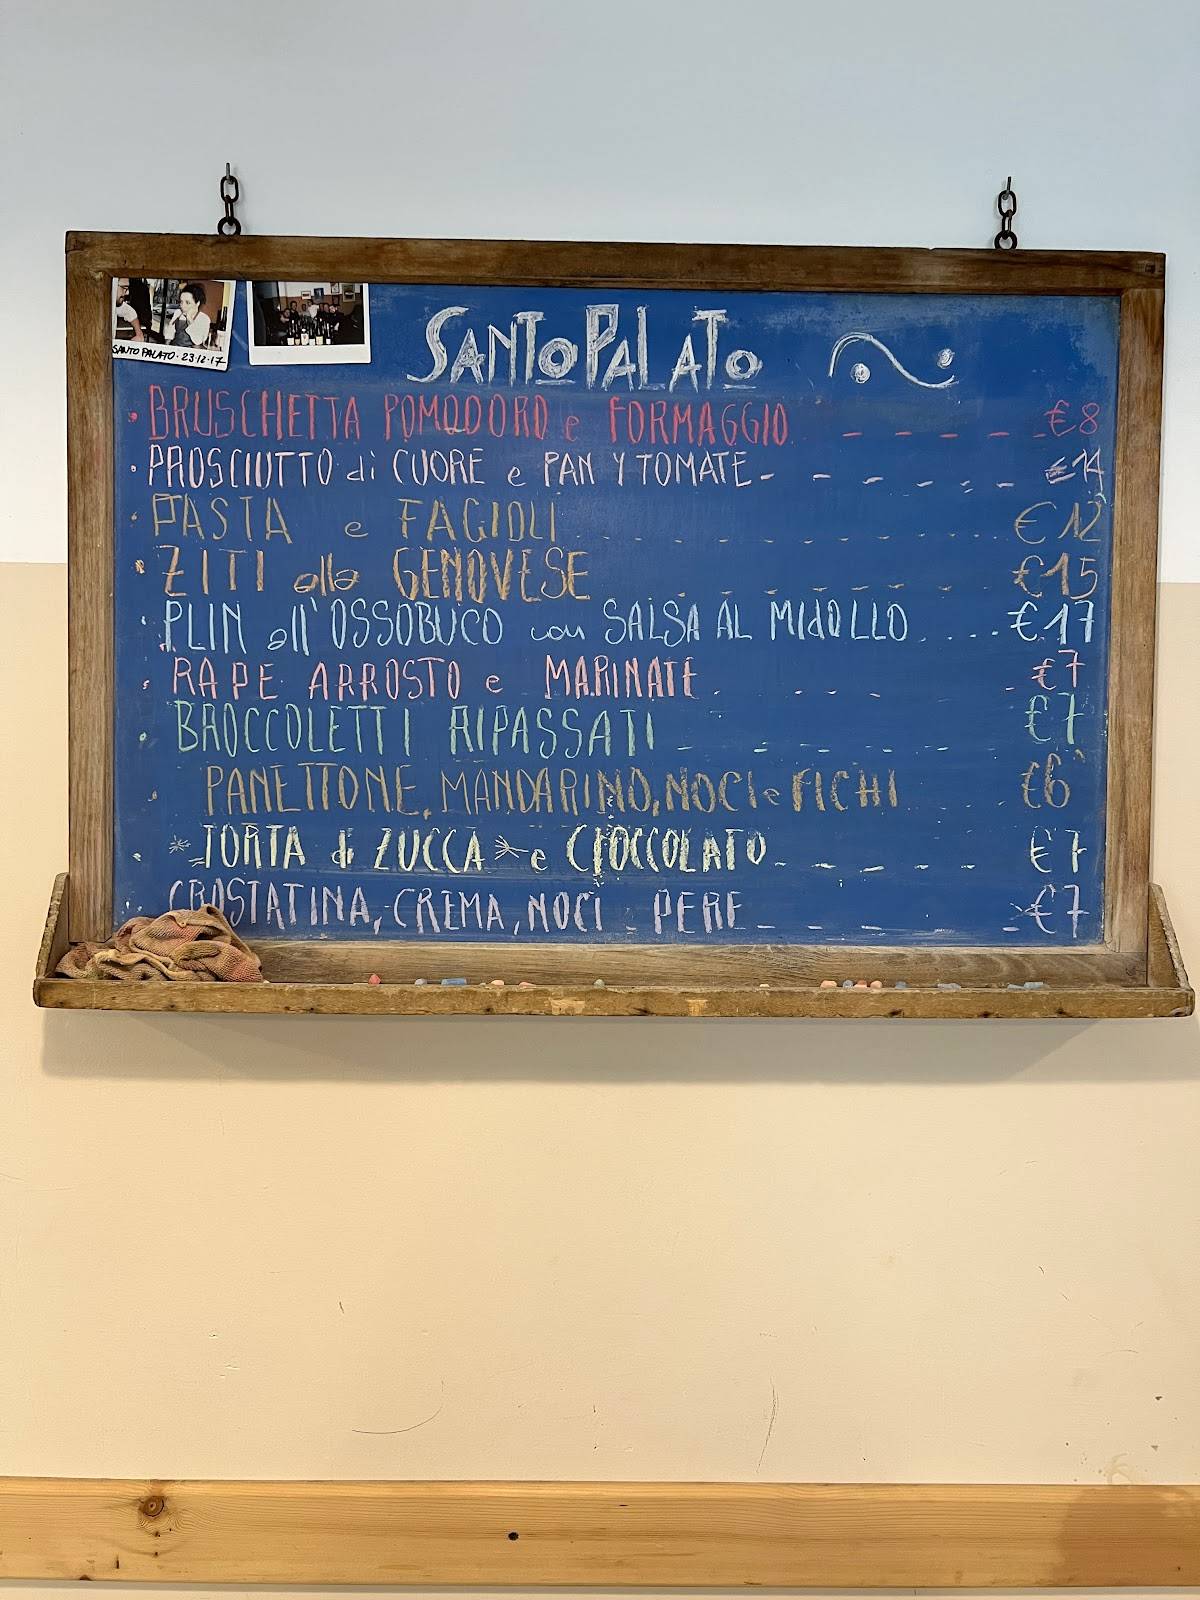 SANTO PALATO · 23·12·17
SANTOPALATO
· BRUSCHETTA POMODORO e FORMAGGIO €8
· PROSCIUTTO di CUORE e PAN Y TOMATE €14
· PASTA e FAGIOLI €12
· ZITI alla GENOVESE €15
· PLIN all'OSSOBUCO con SALSA AL MIdOLLO €17
· RAPE ARROSTO e MARINATE €7
· BROCCOLETTI RIPASSATI €7
· PANETTONE, MANDARINO, NOCI e FICHI €6
* TORTA di ZUCCA * e CIOCCOLATO €7
CROSTATINA, CREMA, NOCI PERE €7